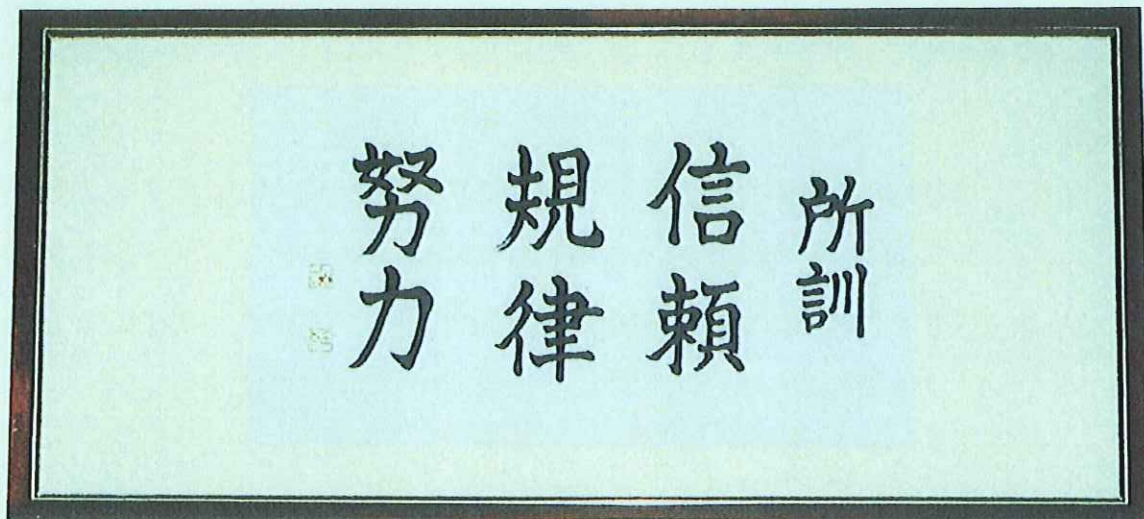 所訓
信頼
規律
努力